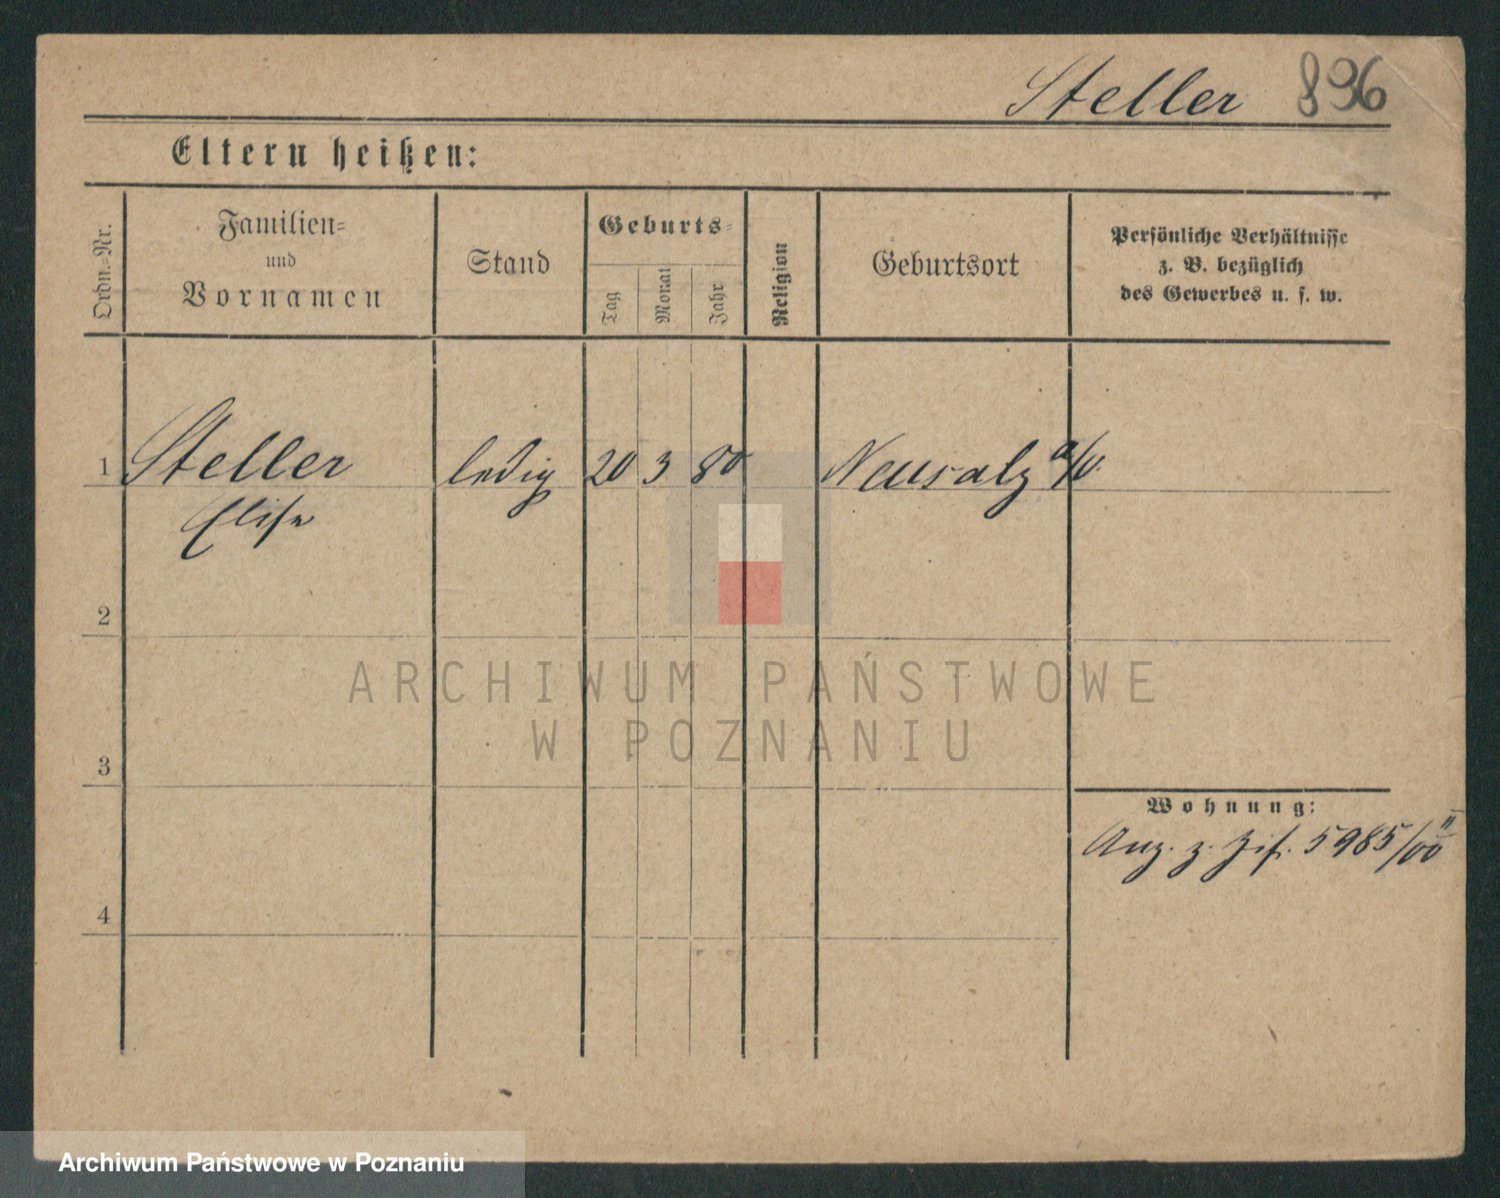 Steller 896
Eltern heißen:
Ordn.-Nr.
Familien-
und
Vornamen
Stand
Geburts-
Tag
Monat
Jahr
Religion
Geburtsort
Persönliche Verhältnisse
z. B. bezüglich
des Gewerbes u. s. w.
1 Steller ledig 20 3 80 Neusalz a/O.
Elise
2
3
4
Wohnung:
Anz. z. Zif. 5985/00 II
ARCHIWUM PAŃSTWOWE
W POZNANIU
Archiwum Państwowe w Poznaniu